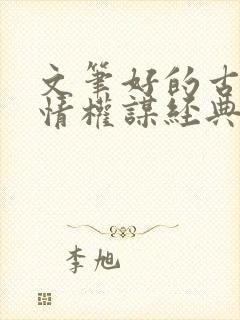 文筆好的古
情權謀經典
李旭